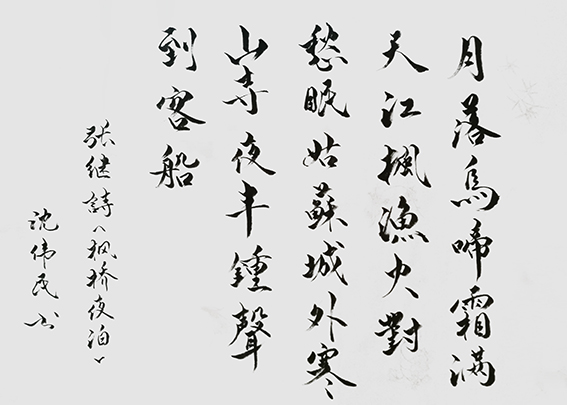 月落烏啼霜满
天江楓漁火對
愁眠姑蘇城外寒
山寺夜半鍾聲
到客船
张继詩《枫桥夜泊》
沈伟民书